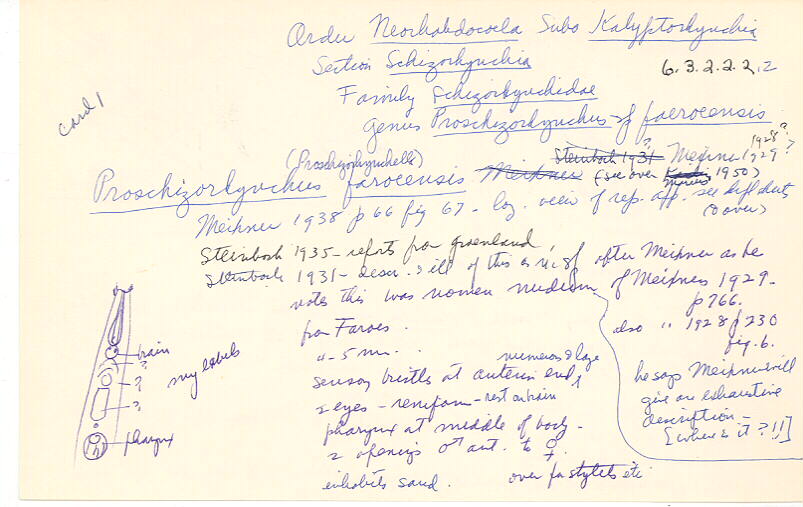 Order Neorhabdocoela Subo Kalyptorhynchia
Section Schizorhynchia
6.3.2.2.2.2
Family Schizorhynchidae
card 1
Genus Proschizorhynchus faeroensis
(Proschizorhynchella) Steinbock 1931? Meixner 1928? 1929?
Proschizorhynchus faroensis Meixner (see over 1950)
Meixner 1938 p 66 fig 67 - view of rep. app. see
(over)
Steinbock 1935 - reports from Greenland,
Steinbock 1931 - descr. & ill of this as n. sp. after Meixner as he
notes this was nomen nudum of Meixner 1929 -
p 766.
also " 1928 p 230
fig. 6.
he says Meixner will
give an exhaustive
description -
[where is it?!!]
from Faroes.
" - 5 mm.
sensory bristles at anterior end, numerous & large
2 eyes - reniform - rest on brain
pharynx at middle of body -
2 openings ♂ ant. to ♀
inhabits sand. over for stylets etc
brain
?
?
?
pharynx
my labels